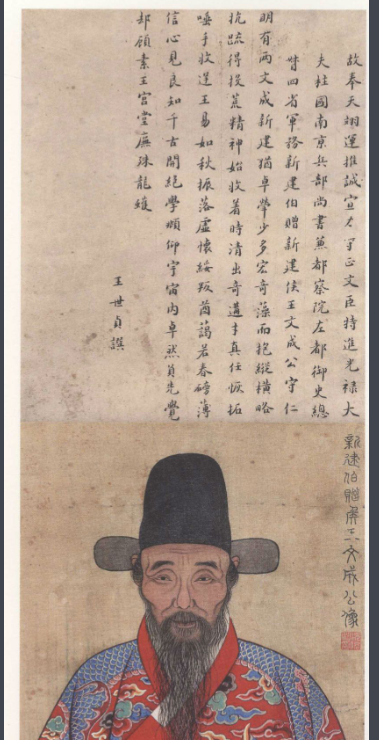 故奉天翊運推誠宣力守正文臣特進光祿大
夫柱國南京兵部尚書兼都察院左都御史總
督四省軍務新建伯贈新建侯王文成公守仁
明有兩文成新建猶卓犖少多宏奇藻而抱縱橫略
抗疏得投荒精神始收著時清出奇遘才真任恢拓
唾手收逆王易如秋振落虛懷綏叛酋藹若春磅薄
信心見良知千古開絕學頫仰宇宙內卓然負先覺
却顧素王宮堂廡殊龍蠖
王世貞譔
新建伯贈侯王文成公像